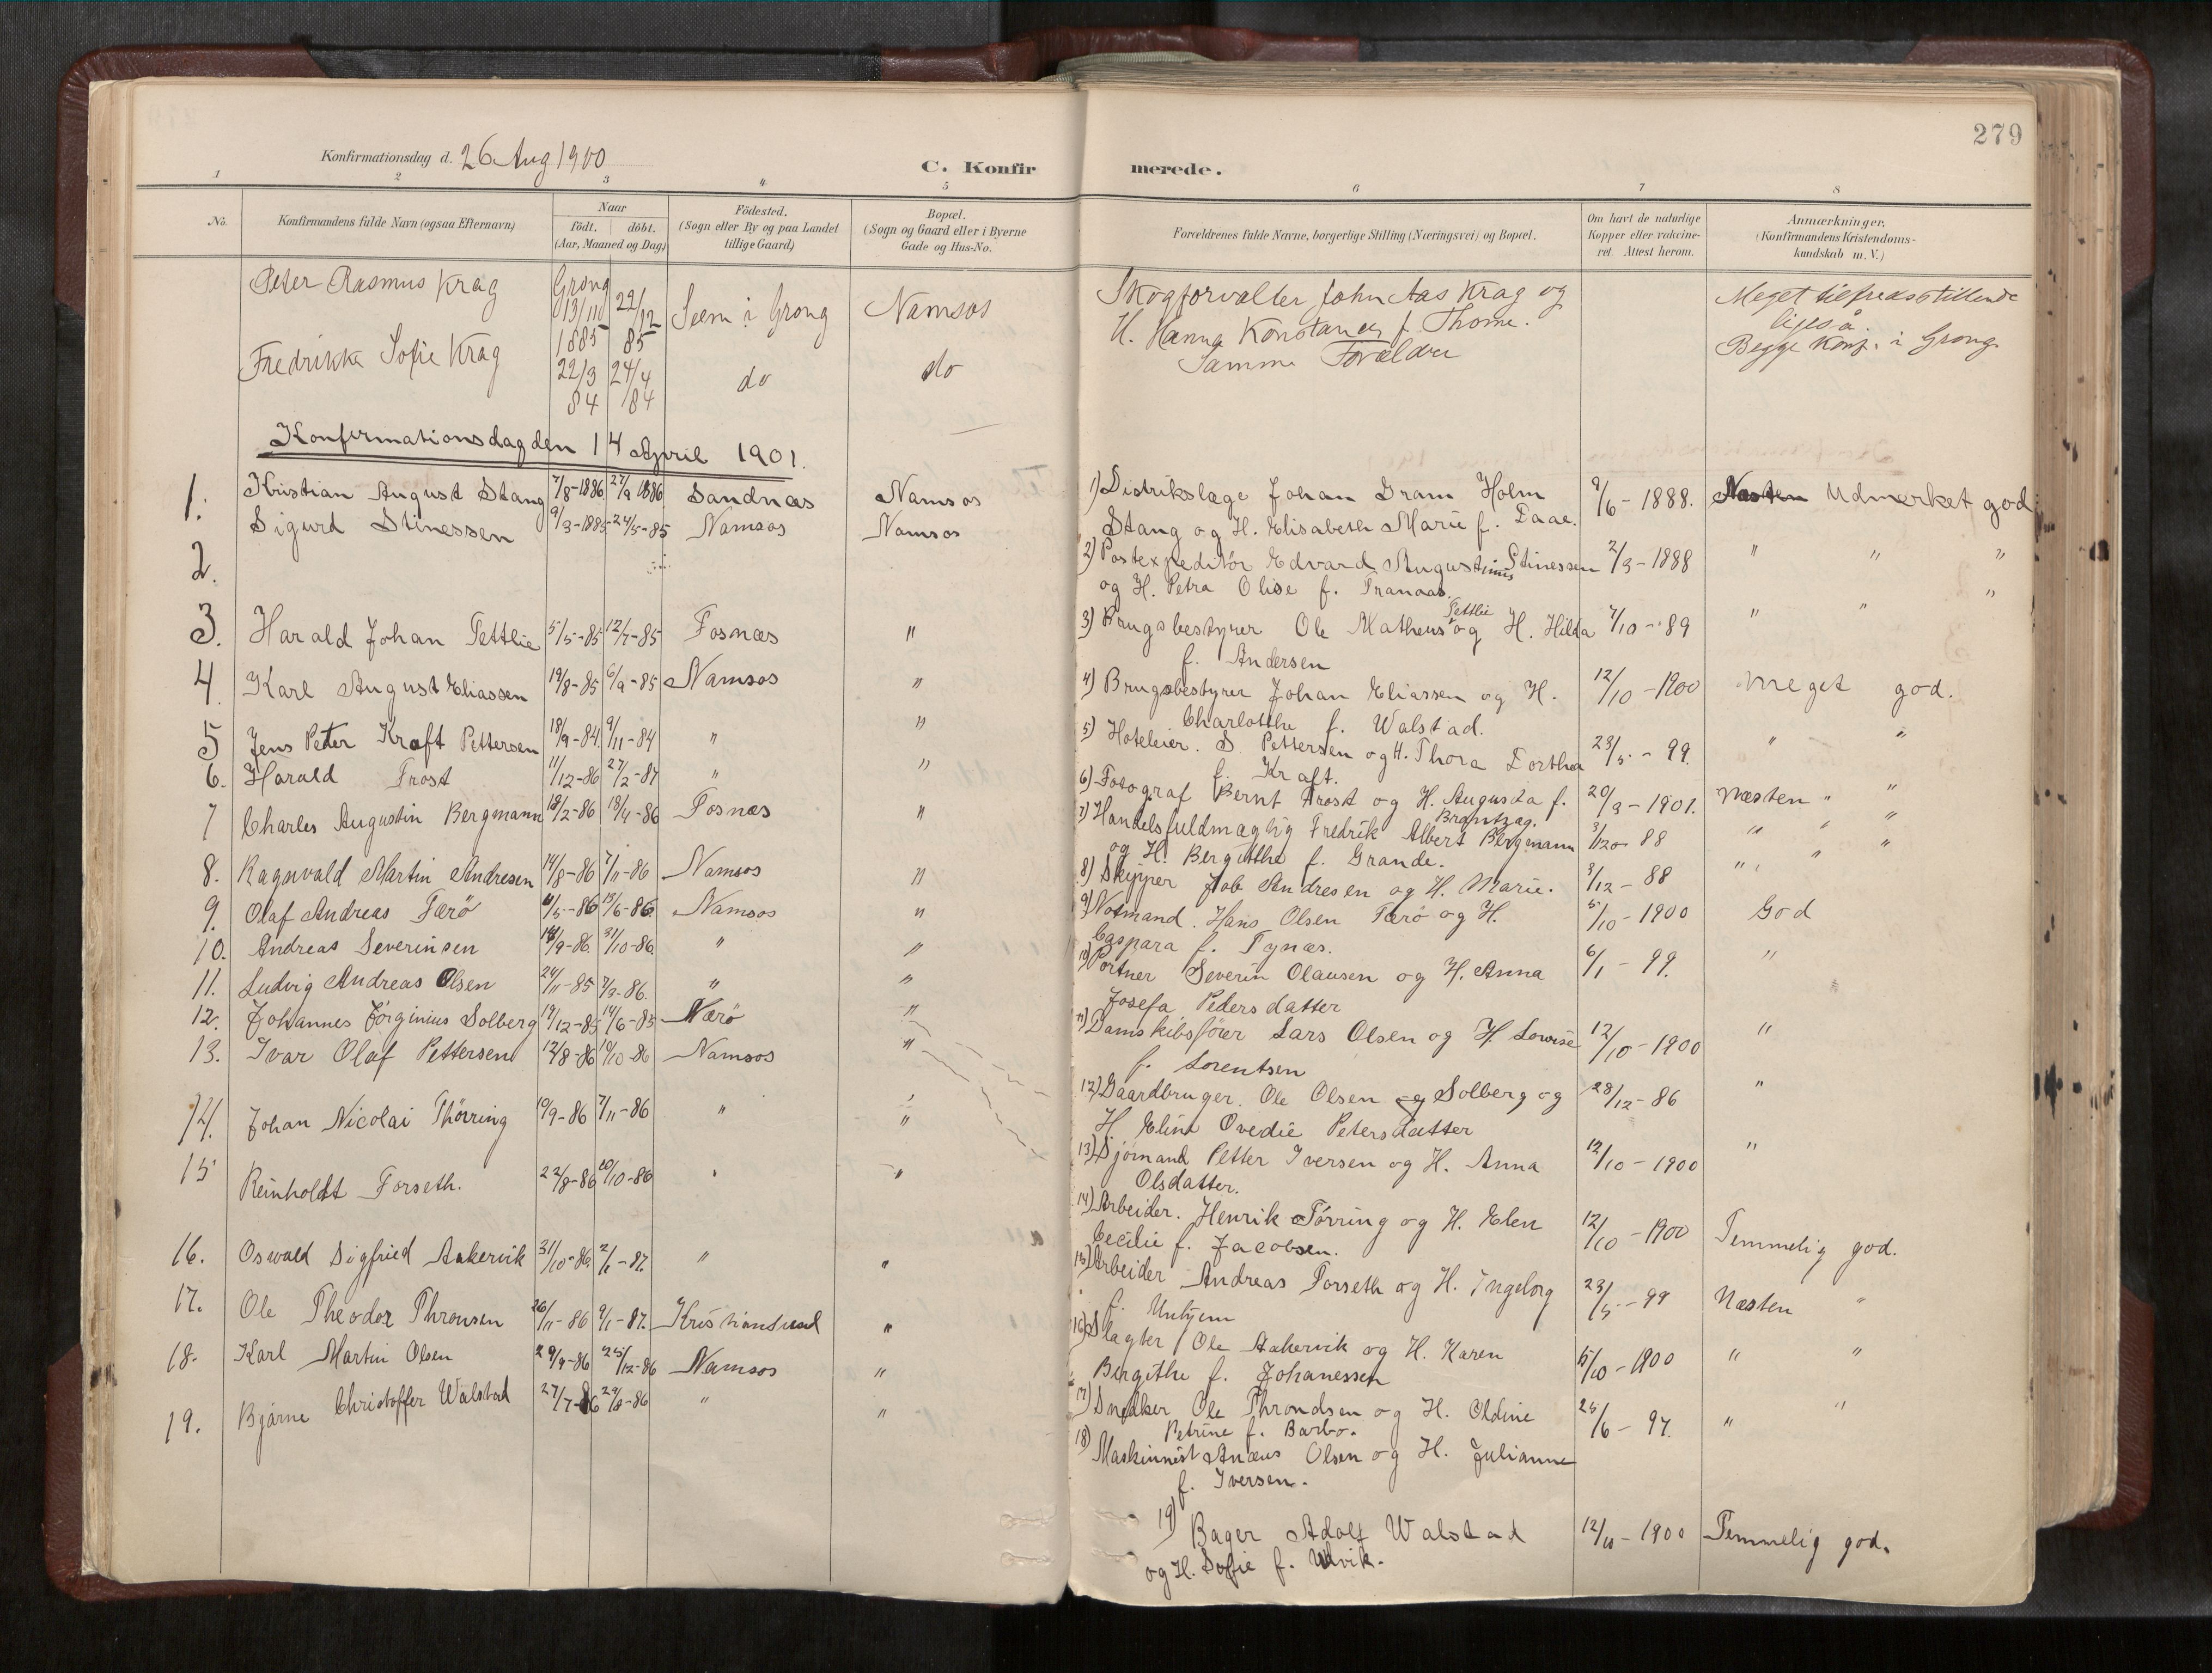 279
Konfirmationsdag d. 26 Aug 1900
C. Konfirmerede.
1 2 3 4 5 6 7 8
No. Konfirmandens fulde Navn (ogsaa Efternavn) Naar födt. döbt. (Aar, Maaned og Dag) Födested. (Sogn eller By og paa Landet tillige Gaard) Bopæl. (Sogn og Gaard eller i Byerne Gade og Hus-No.
Forældrenes fulde Navne, borgerlige Stilling (Næringsvei) og Bopæl. Om havt de naturlige Kopper eller vakcineret. Attest herom. Anmærkninger. (Konfirmandens Kristendomskundskab m. V.)
Peter Rasmus Krag Grong 13/11 1885 22/12 85 Seem i Grong Namsos
Fredrikke Sofie Krag 22/3 84 24/4 84 do do
Konfirmationsdag den 14 April 1901.
1. Kristian August Stang 7/8-1886 27/9 1886 Sandnæs Namsos
2. Sigurd Stinessen 9/3-1885 24/5-85 Namsos Namsos
3. Harald Johan Tettlie 5/5-85 12/7-85 Fosnæs "
4. Karl August Eliassen 19/8-85 6/9-85 Namsos "
5 Jens Peter Kraft Pettersen 18/9-84. 9/11-84 " "
6. Harald Frost 11/12-86 27/2-87 " "
7 Charles Augustin Bergmann 18/2-86 18/4-86 Fosnæs "
8. Ragnvald Martin Andresen 14/8-86 7/11-86 Namsos "
9. Olaf Andreas Færö 6/5-86 13/6-86 Namsos "
10. Andreas Severinsen 14/9-86. 31/10-86. " "
11. Ludvig Andreas Olsen 24/11-85 7/3-86. " "
12. Johannes Jörginius Solberg 19/12-85 14/6-85 Nærö "
13. Ivar Olaf Pettersen 12/8-86 10/10-86 Namsos "
14. Johan Nicolai Thörring 10/9-86 7/11-86 " "
15 Reinholdt Forseth. 22/8-86 10/10-86 " "
16. Oswald Sigfried Aakervik 31/10-86 2/1-87. " "
17. Ole Theodor Thronsen 26/11-86 9/1-87. Kristiansund "
18. Karl Martin Olsen 29/9-86 25/12-86 Namsos "
19. Bjarne Christoffer Walstad 27/7-86 29/8-86 " "
Skogforvalter John Aas Krag og Meget tilfredsstillende
H. Hanna Konstance f. Thome. ligeså.
Samme Forældre Begge Konf. i Grong.
1) Distrikslæge Johan Gram Holm 9/6-1888. Næsten Udmerket god
Stang og H. Elisabeth Marie f. Daae.
2) Postexpeditör Edvard Augustinius Stinessen 2/3-1888 " " "
og H. Petra Olise f. Tranaas. "
3) Brugsbestyrer Ole Matheus Tettlie og H. Hilda 7/10-89 " "
f. Andersen
4) Brugsbestyrer Johan Eliassen og H. 12/10-1900 Meget god.
Charlotthe f. Walstad.
5) Hoteleier. S. Pettersen og H. Thora Dorthea 23/5-99. " "
f. Kraft.
6) Fotograf Bernt Frost og H. Augusta f. 20/3-1901. Næsten " "
Brantzæg.
7) Handelsfuldmægtig Fredrik Albert Bergmann 3/12-88 " " "
og H. Bergitthe f. Grande.
8) Skipper Job Andresen og H. Marie. 3/12-88 " " "
9) Notmand. Hans Olsen Færö og H. 5/10-1900 God
Caspara f. Tynæs.
10) Portner Severin Olausen og H. Anna 6/1-99. "
Josefa Pedersdatter
11) Damskibsförer Lars Olsen og H. Lowise 12/10-1900 "
f. Lorentsen
12) Gaardbruger. Ole Olsen og Solberg og 28/12-86 "
H Eline Ovedie Petersdatter
13) Sjömand Petter Iversen og H. Anna 12/10-1900 "
Olsdatter.
14) Arbeider. Henrik Törring og H. Elen 12/10-1900 Temmelig god.
Cecilie f. Jacobsen.
15) Arbeider Andreas Forseth og H. Ingeborg 23/5-99 Næsten "
f. Unhjem
16) Slagter Ole Aakervik og H. Karen 5/10-1900 " "
Bergithe f. Johanessen
17) Snedker Ole Throndsen og H. Oldine 25/6-97. " "
Petrine f. Barbo.
18) Maskinnist Anæus Olsen og H. Julianne
f. Iversen.
19) Bager Adolf Walstad 12/10-1900 Temmelig god.
og H. Sofie f. Ulvik.